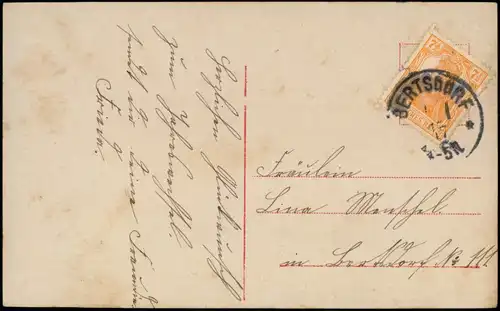 Herzlichen Glückwunsch
zum Jahreswechsel
sendet dir deine Freundin
Frieda.
BERTSDORF
7½
Fräulein
Lina Menschel.
in Bertsdorf. No 111